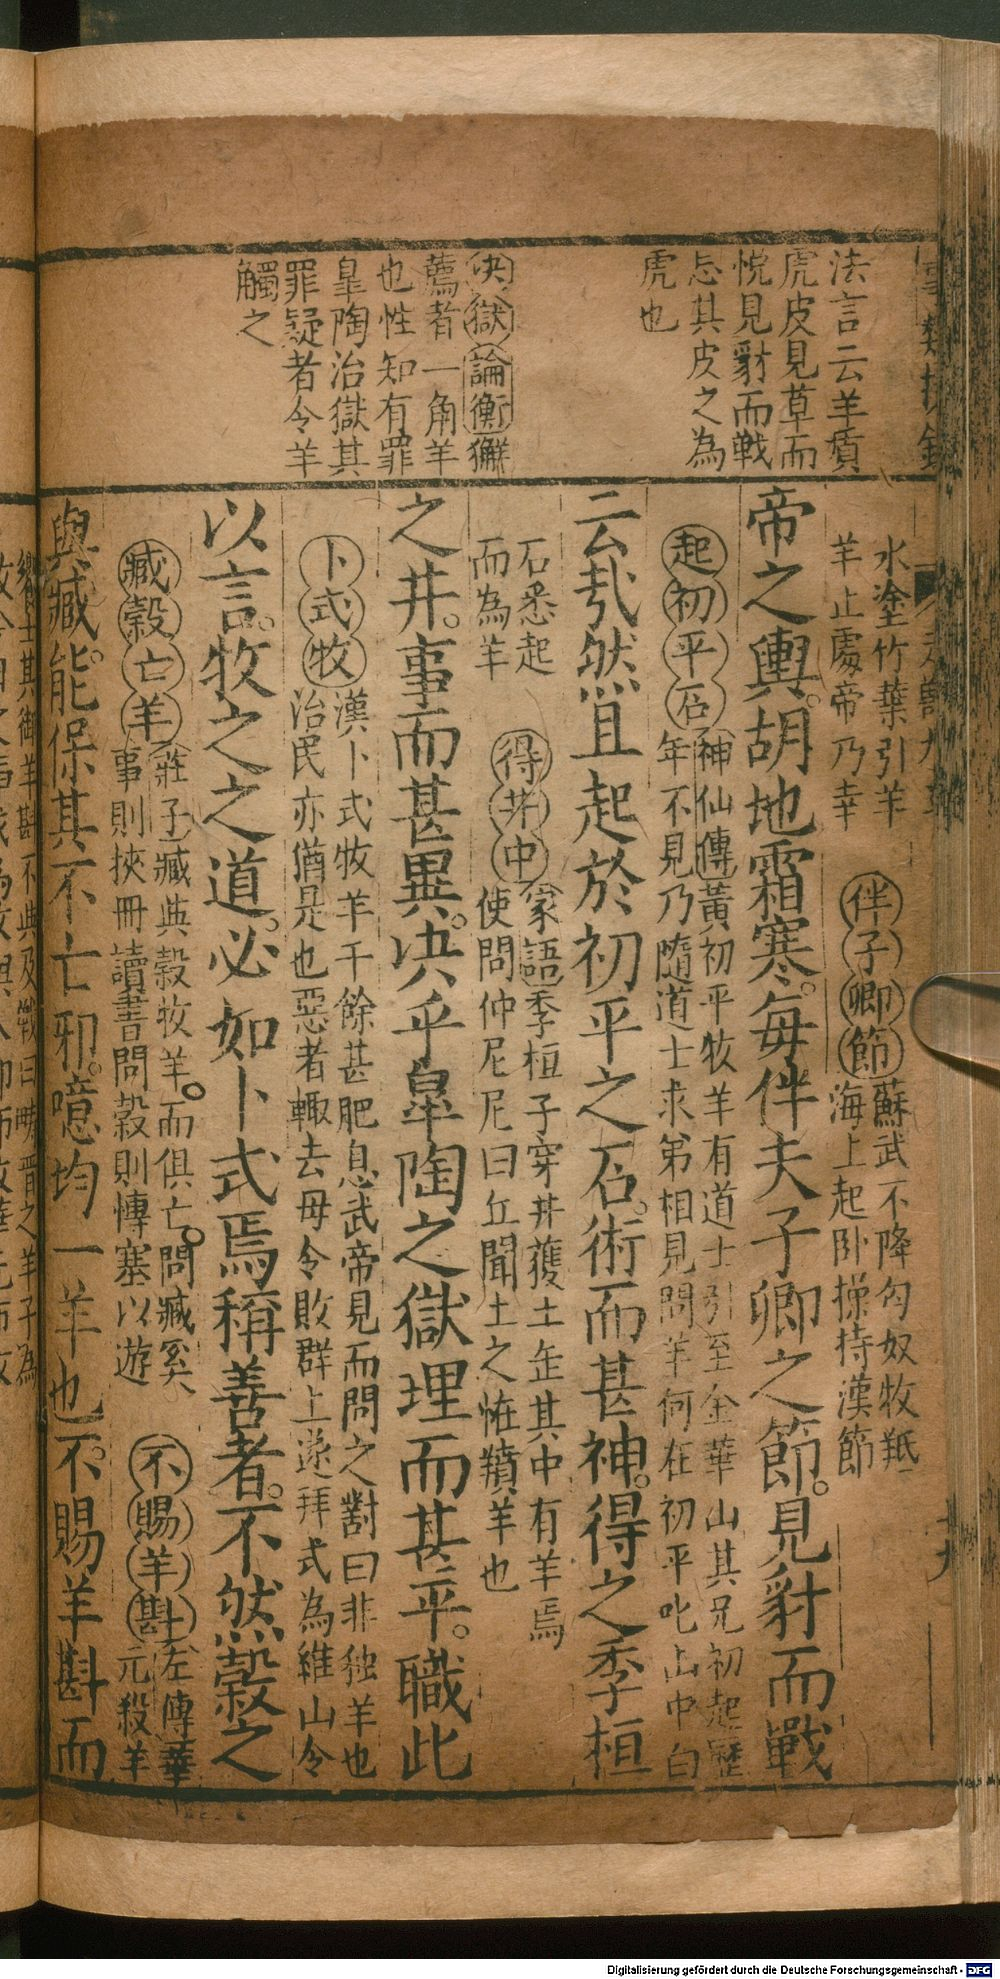 法言云羊質
虎皮見草而
悅見豺而戰
忘其皮之為
虎也
決獄論衡獬
廌者一角羊
也性知有罪
臯陶治獄其
罪疑者令羊
觸之
水塗竹葉引羊
羊止處帝乃幸
伴子卿節
蘇武不降匈奴牧羝
海上起卧操持漢節
帝之輿。胡地霜寒。每伴夫子卿之節。見豺而戰
起初平石
神仙傳黃初平牧羊有道士引至金華山其兄初起歷
年不見乃隨道士求弟相見問羊何在初平叱山中白
云哉然且起於初平之石。術而甚神。得之季桓
石悉起
而為羊
得井中
家語季桓子穿井獲土缶其中有羊焉
使問仲尼尼曰丘聞土之怪羵羊也
之井。事而甚異。決乎臯陶之獄理而甚平。職此
卜式牧
漢卜式牧羊千餘甚肥息武帝見而問之對曰非独羊也
治民亦猶是也惡者輙去毋令敗群上遂拜式為維山令
以言。牧之之道。必如卜式焉稱善者。不然縠之
臧縠亡羊
莊子臧與縠牧羊。而俱亡。問臧奚
事則挾冊讀書問縠則慱塞以遊
不賜羊斟
左傳華
元殺羊
與臧。能保其不亡邪。噫均一羊也。不賜羊斟而
Digitalisierung gefördert durch die Deutsche Forschungsgemeinschaft - DFG